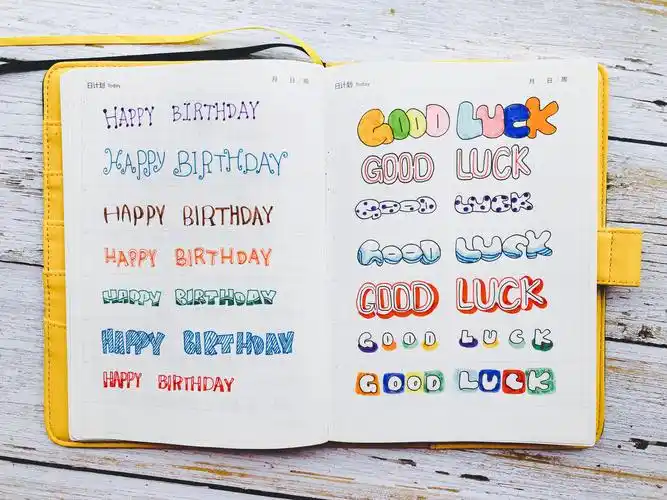 日计划 Today
月 日/周
HAPPY BIRTHDAY
HAPPY BIRTHDAY
HAPPY BIRTHDAY
HAPPY BIRTHDAY
HAPPY BIRTHDAY
HAPPY BIRTHDAY
HAPPY BIRTHDAY
日计划 Today
月 日/周
GOOD LUCK
GOOD LUCK
GOOD LUCK
GOOD LUCK
GOOD LUCK
GOOD LUCK
GOOD LUCK